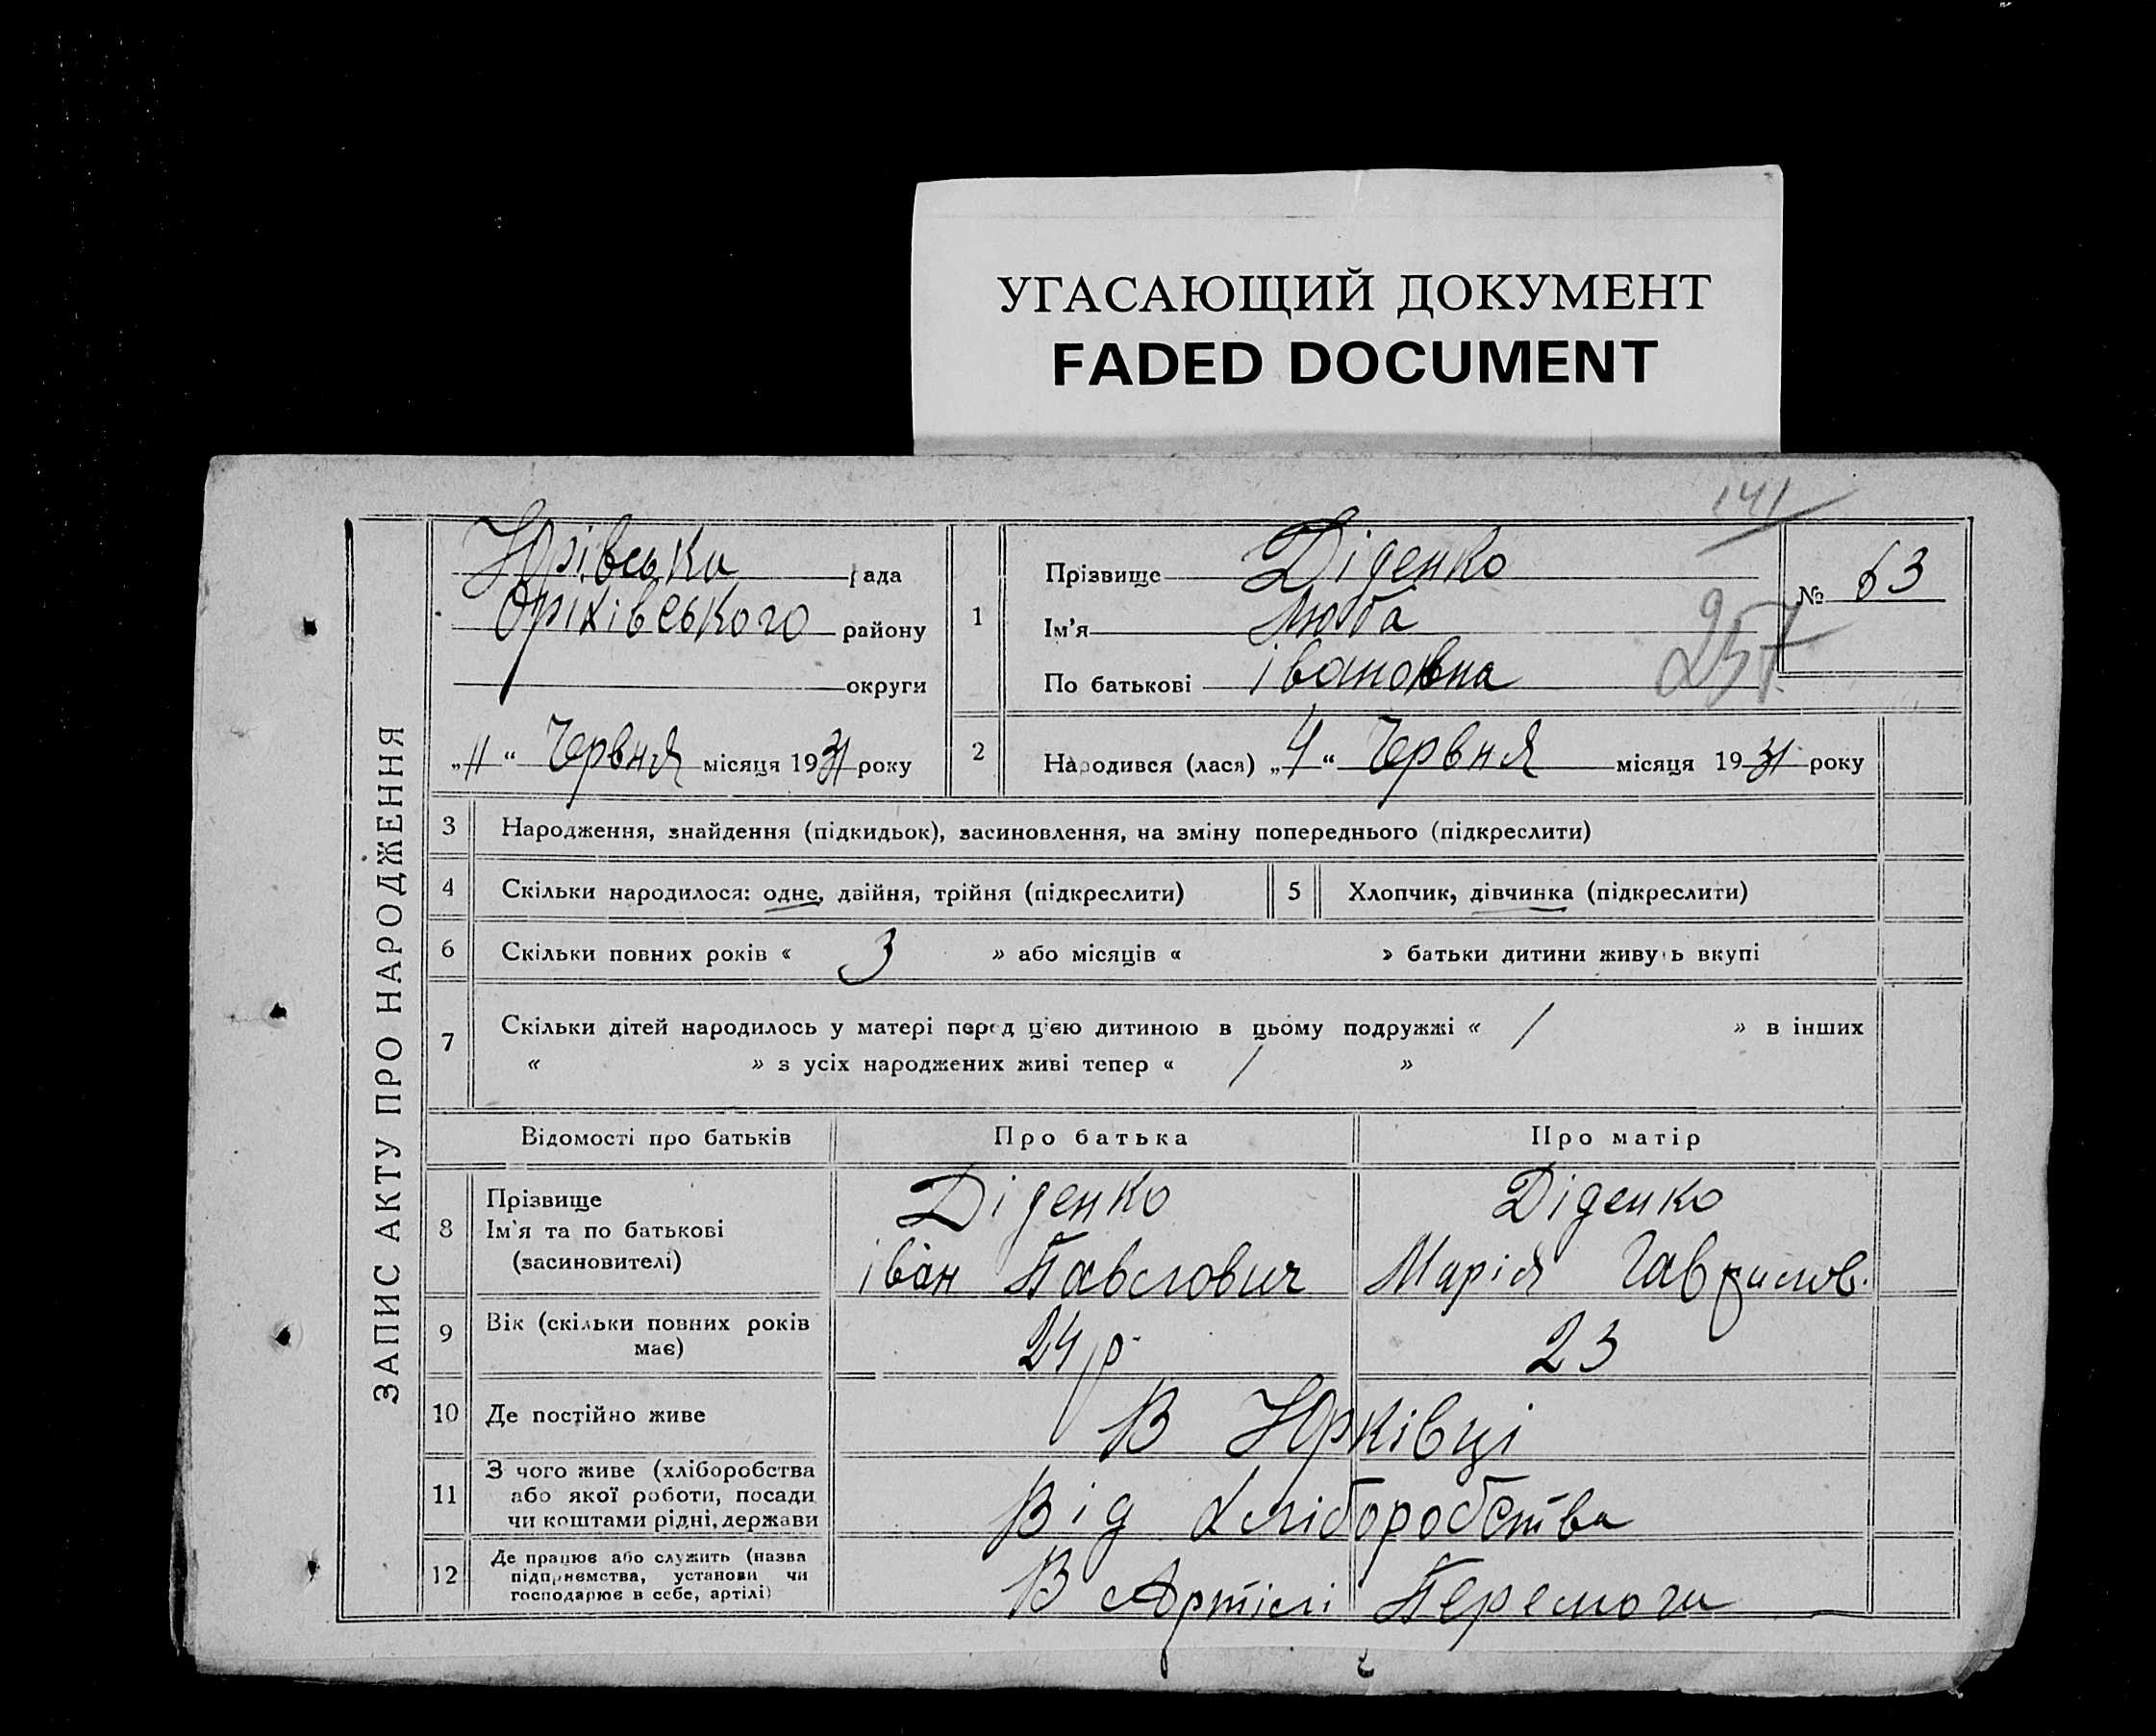 УГАСАЮЩИЙ ДОКУМЕНТ
FADED DOCUMENT
141
ЗАПИС АКТУ ПРО НАРОДЖЕННЯ
Юрівська рада
Оріхівського району
округи
„11“ Червня місяця 1931 року
1
Прізвище Діденко
Ім'я Люба
По батькові Івановна
№ 63
257
2
Народився (лася) „4“ Червня місяця 1931 року
3 Народження, знайдення (підкидьок), засиновлення, на зміну попереднього (підкреслити)
4 Скільки народилося: одне, двійня, трійня (підкреслити) 5 Хлопчик, дівчинка (підкреслити)
6 Скільки повних років « 3 » або місяців « » батьки дитини живуть вкупі
7 Скільки дітей народилось у матері перед цією дитиною в цьому подружжі « / » в інших
« » з усіх народжених живі тепер « / »
Відомості про батьків Про батька Про матір
8 Прізвище Діденко Діденко
Ім'я та по батькові
(засиновителі) Іван Павлович Марія Гаврилов.
9 Вік (скільки повних років має) 24 р. 23
10 Де постійно живе В Юрківці
11 З чого живе (хліборобства
або якої роботи, посади
чи коштами рідні, держави Від хліборобства
12 Де працює або служить (назва
підприємства, установи чи
господарює в себе, артілі) В Артілі Перемога